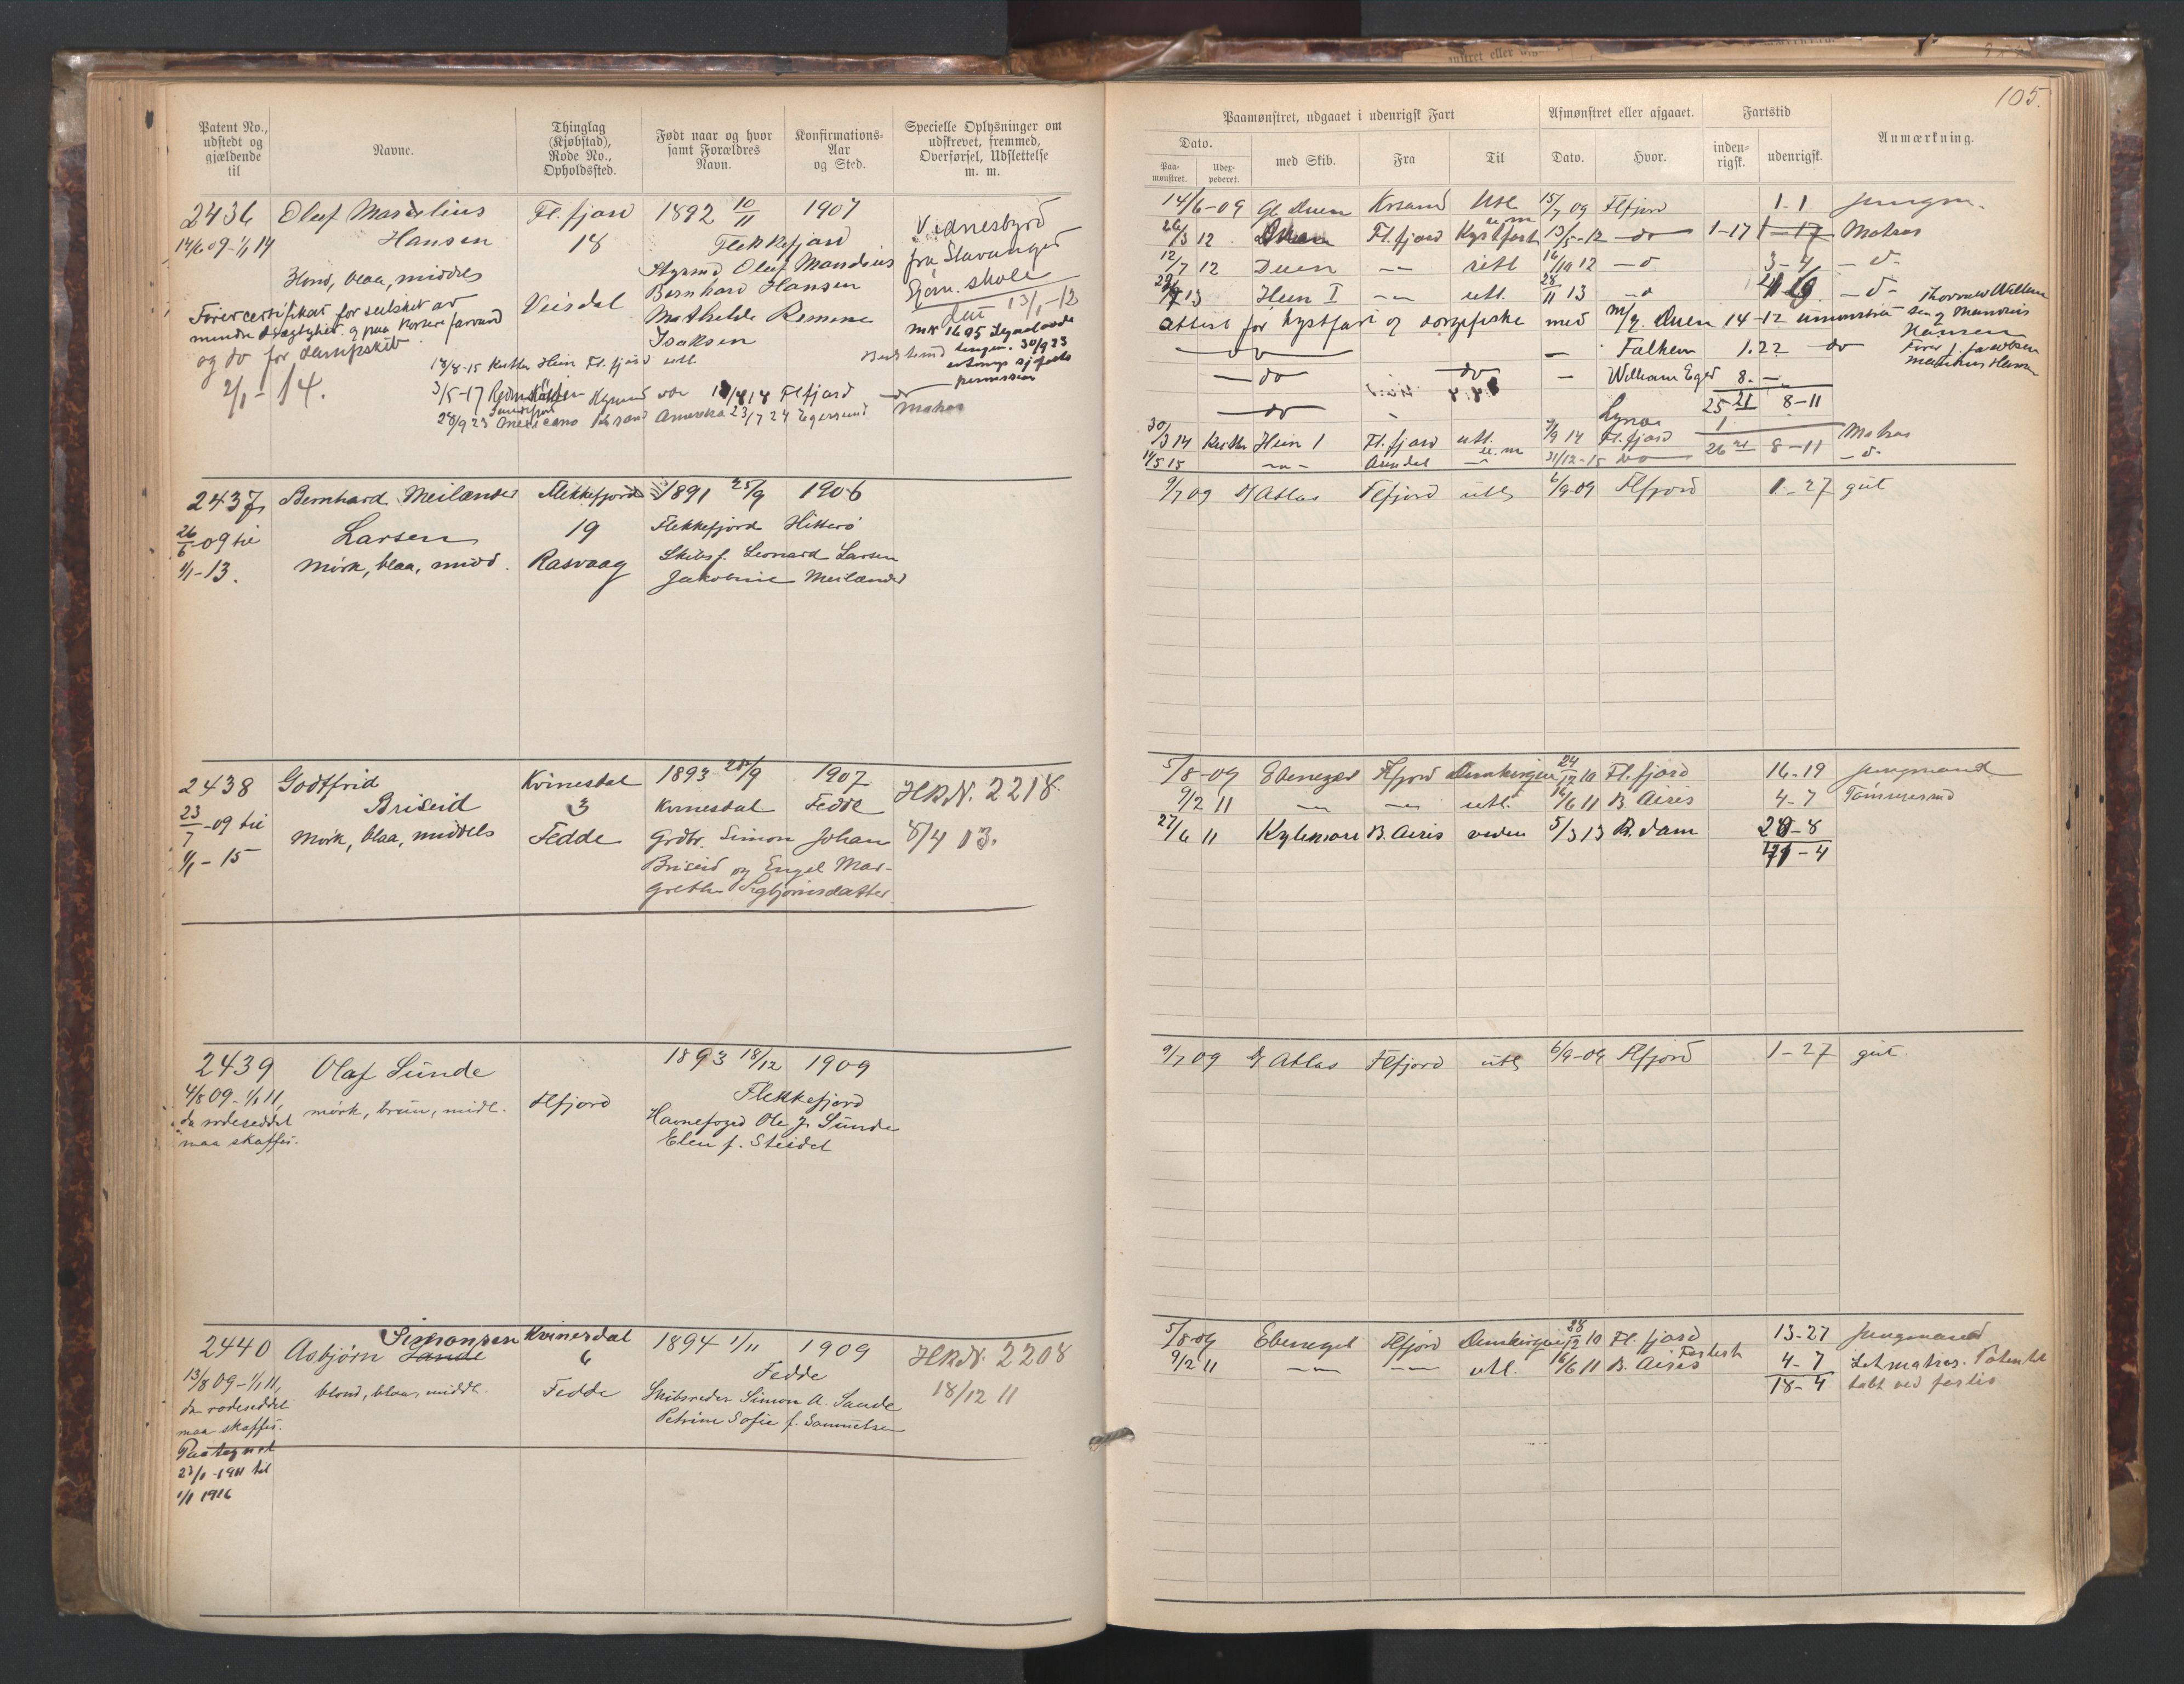 105.
Patent No., udstedt og gjældende til
Navne.
Thinglag (Kjøbstad), Rode No., Opholdssted.
Født naar og hvor samt Forældres Navn.
Konfirmations-Aar og Sted.
Specielle Oplysninger om udskrevet, fremmed, Overførsel, Udslettelse m. m.
Paamønstret, udgaaet i udenrigsk Fart
Afmønstret eller afgaaet.
Fartstid
Anmærkning.
Dato.
Paa-mønstret.
Udex-pederet.
med Skib.
Fra
Til
Dato.
Hvor.
inden-rigsk.
udenrigsk.
2436 Oluf Hansen Fl.fjord 1892 10/11 1907
14/6 09-1/1 14 18 Flekkefjord Vidnesbyrd
blond, blaa, middels Styrmd Oluf Mandius fra Stavanger
Bernhard Hansen Sjøm. skole
Veisdal Mathilde Remme den 13/1-12
Isaksen
Førercertifikat for seilskib av
mindre drægtighet og paa kortere farvand
og do for dampskib
2/1-14.
18/8-15 Kutter Hein Fl.fjord utl
14/6-09 Gl Duen Krsand Utl 15/7 09 Flfjord 1-1 Jungm.
26/3 12 Fl.fjord Kystfart 13/5-12 do 1-17 Matros
12/7 12 Duen 16/10 12 3-4 d
Hein I utl. 28/11 13
Attest for kystfart og dorgefiske med m/k. Duen 14-12
do Falken 1.22 do
do do William Eger 8.
do 25 21 8-11
30/3 14 Kutter Hein I Fl.fjord utl. 7/9 14 Fl.fjord 26 8-11 Matros
14/5 15 Arendal 31/12-15 do d
2437 Bernhard Meilænder Flekkefjord 1891 25/9 1906
26/6-09 til Larsen 19 Flekkefjord Hitterø
1/1-13. mørk, blaa, midd. Rasvaag Skibsf. Leonard Larsen
Jakobine Meilænder
9/7 09 D/ Atlas Flfjord utl 6/9-09 Flfjord 1-27 gut
2438 Godtfrid Kvinesdal 1893 28/9 1907 HRN. 2218.
23/7-09 til Briseid 3 Kvinesdal Fedde
1/1-15 Mørk, blaa, middels Fedde Grdbr. Simon Johan 8/4 13.
Briseid og Engel Mar-
grethe Sigbjørnsdatter
5/8-09 Ebenezer Flfjord Dunkirgen 24/12 10 Fl.fjord 16-19 Jungmand
9/2 11 utl. 16/6 11 B. Aires 4-7 Tømmermd
27/6 11 Kylemore B. Aires 5/3 13 R.dam 20-8
41-4
2439 Olaf Sunde 1893 18/12 1909
4/8 09-1/1 11, mørk, brun, midl. Flfjord Flekkefjord
da rodeseddel Havnefoged Ole J. Sunde
maa skaffes. Elen f. Steidel
9/7 09 D/ Atlas Flfjord utl 6/9-09 Flfjord 1-27 gut
2440 Asbjørn Sande Simonsen Kvinesdal 1894 1/11 1909 HRN. 2208
13/8 09-1/1 11, 6 Fedde
da rodeseddel blond, blaa, middl. Fedde Skibsreder Simon A. Sande 18/12 11
maa skaffes. Petrine Sofie f. Samuelsen
Paategnet
23/1-1911 til
1/1 1916
5/8-09 Ebenezer Flfjord Dunkirgen 28/12 10 Fl.fjord 13-27 Jungmand
9/2 11 utl. 16/6 11 B. Aires Forlist 4-7 Letmatros. Patentet
18-4 tabt ved forlis